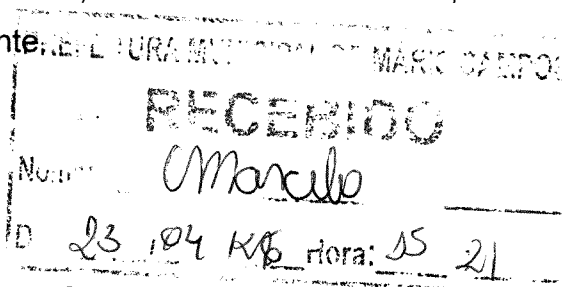 PREFEITURA MUNICIPAL DE MARIO CAMPOS
RECEBIDO
Marcelo
23 / 04 Hora: 15 21